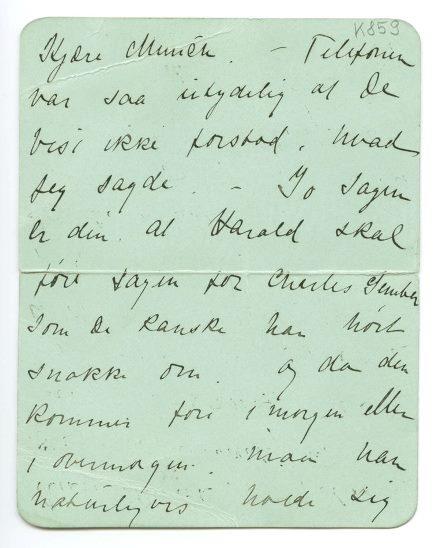 K859
Kjære Munch. – Telefonen
var saa utydelig at De
visst ikke forstod, hvad
jeg sagde. – Jo Sagen
er den at Harald skal
føre Sagen for Charles
som De kanske har hørt
snakke om. og da den
kommer fore imorgen eller
i overmorgen. maa han
naturligvis holde sig